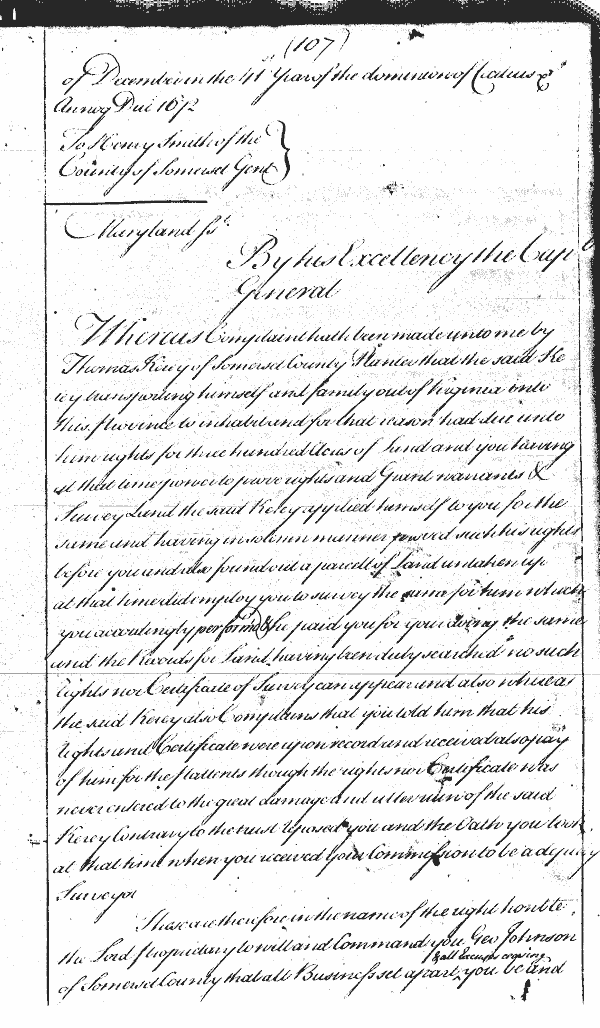 (107)
of December in the 41st Year of the dominion of Cecilius &c
Annoq Dni 1672
To Henry Smith of the
County of Somerset Gent }
Maryland ss.
By his Excellency the Capt
General
Whereas Complaint hath been made unto me by
Thomas Kersy of Somerset County Planter that the said Ke
sey transporting himself and family out of Virginia into
this province to inhabit and for that reason had due unto
him rights for three hundred Acres of Land and you having
at that time power to prove rights and Grant warrants &
Survey Land the said Kersey applyed himself to you for the
same and having in solemn manner proved such his rights
before you and also found out a parcell of Land untaken up
at that time did employ you to survey the same for him which
you accordingly perform'd & he paid you for your doeing the same
and the Records for Land having been duly searched no such
rights nor Certificate of Survey can appear and also whereas
the said Kersey also Complains that you told him that his
rights and Certificate were upon record and received also pay
of him for the Pattents though the rights nor Certificate was
never entered to the great damage and utter ruin of the said
Kersey Contrary to the trust reposed you and the Oath you took
at that time when you received your Commission to be a deputy
Surveyor
These are therefore in the name of the right honble
the Lord Proprietary to will and Command you Geo Johnson
& all Excuses ceasing
of Somerset County that all Business set apart you be and